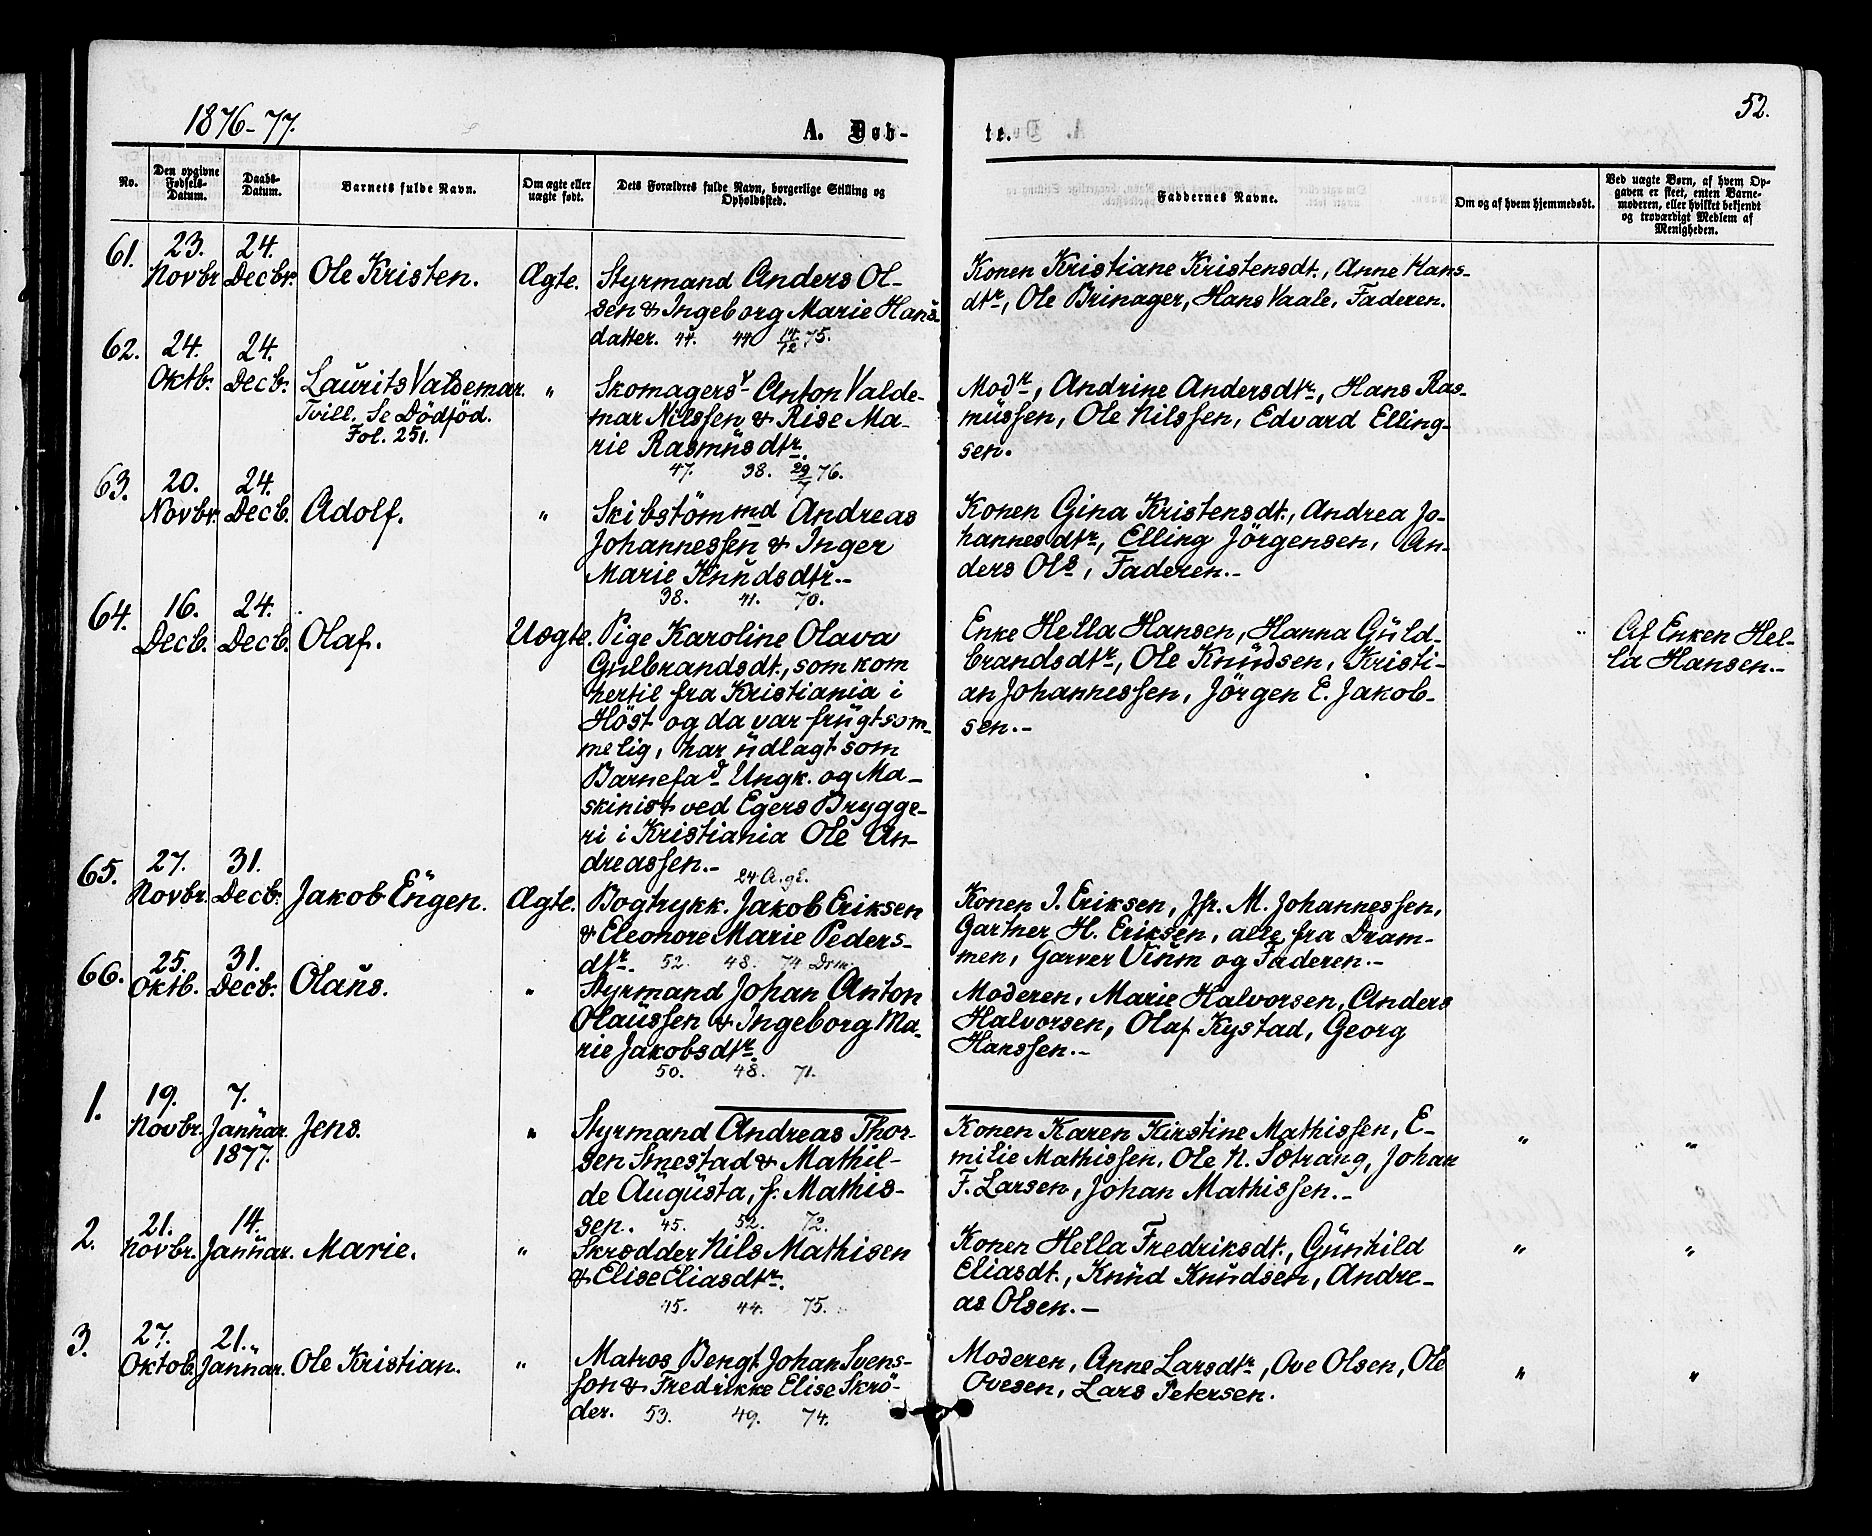 52.
1876-77.
A. Døb-
te.
No.
Den opgivne Fødsels-Datum.
Daabs-Datum.
Barnets fulde Navn.
Om ægte eller uægte født.
Dets Forældres fulde Navn, borgerlige Stilling og Opholdssted.
Faddernes Navne.
Om og af hvem hjemmedøbt.
Ved uægte Børn, af hvem Opgaven er skeet, enten Barnemoderen, eller hvilket bekjendt og troværdigt Medlem af Menigheden.
61.
23. Novbr
24. Decbr.
Ole Kristen.
Ægte.
Styrmand Anders Ol-
sen & Ingeborg Marie Hans-
datter. 44. 44 14/12 75.
Konen Kristiane Kristensdt., Anne Hans-
dtr, Ole Brinager, Hans Vaale, Faderen.
62.
24. Oktb.
24. Decb.
Laurits Valdemar.
Tvill. Se Dödföd.
Fol. 251.
"
Skomagersv Anton Valde-
mar Nilssen & Rise Ma-
rie Rasmusdtr.
47. 38. 29/7 76.
Modr, Andrine Andersdtr, Hans Ras-
mussen, Ole Nilssen, Edvard Elling-
sen.
63.
20. Novbr
24. Decb.
Adolf.
"
Skibstömmd Andreas
Johannessen & Inger
Marie Knudsdtr.-
38. 41. 70.
Konen Gina Kristensdt., Andrea Jo-
hannesdtr, Elling Jörgensen, An-
ders Ols, Faderen.-
64.
16. Decb.
24. Decb.
Olaf.
Uægte.
Pige Karoline Olava
Gulbrandsdt., som kom
hertil fra Kristiania i
Höst og da var frugtsom-
melig, har udlagt som
Barnefad Ungk. og Ma-
skinist ved Egers Brygge-
ri i Kristiania Ole An-
dreassen.-
24 A. gl.
Enke Hella Hansen, Hanna Guld-
brandsdtr, Ole Knudsen, Kristi-
an Johannessen, Jörgen E. Jakob-
sen.-
"
Af Enken Hel-
la Hansen.-
65.
27. Novbr.
31. Decb.
Jakob Engen.
Ægte.
Bogtrykk. Jakob Eriksen
& Eleonore Marie Peders-
dtr. 52. 48. 74 Drm.
Konen J. Eriksen, Jfr. M. Johannessen,
Gartner H. Eriksen, alle fra Dram-
men, Garver Vium og Faderen.-
66.
25. Oktb.
31. Decb.
Olaus.
"
Styrmand Johan Anton
Olaussen & Ingeborg Ma-
rie Jakobsdtr.
50. 48. 71.
Moderen, Marie Halvorsen, Anders
Halvorsen, Olaf Kystad, Georg
Hanssen.-
1.
19. Novbr.
7. Januar. 1877.
Jens.
"
Styrmand Andreas Thor-
sen Smestad & Mathil-
de Augusta, f. Mathis-
sen. 45. 52. 72.
Konen Karen Kirstine Mathissen, E-
milie Mathissen, Ole N. Sætrang, Johan
F. Larsen, Johan Mathissen.-
"
"
2.
21. Novbr.
14. Januar.
Marie.
"
Skrædder Nils Mathisen
& Elise Eliasdtr.
45. 44. 75.
Konen Hella Fredriksdt., Gunhild
Eliasdt., Knud Knudsen, Andre-
as Olsen.-
"
"
3.
27. Oktob.
21. Januar.
Ole Kristian.
"
Matros Bengt Johan Svens-
son & Fredrikke Elise Skrö-
der. 53. 49. 74.
Moderen, Anne Larsdtr, Ove Olsen, Ole
Ovesen, Lars Petersen.
"
"